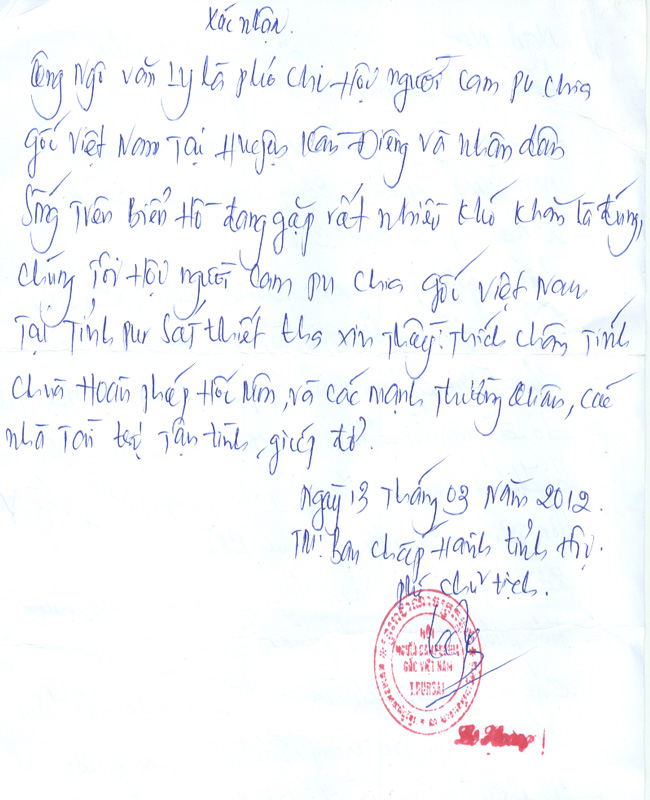 Xác nhận.
Ông Ngô văn Ly là phó chi Hội người Cam pu chia
gốc Việt Nam Tại Huyện Kan Điêng và nhân dân
Sống Trên Biển Hồ đang gặp rất nhiều khó khăn là đúng,
chúng Tôi Hội người Cam pu chia gốc Việt Nam
Tại Tỉnh pur Sat thiết tha xin Thầy: Thích chơn Tính
chùa Hoằn pháp Hốc Môn, và các mạnh Thường Quân, các
nhà Tài trợ Tận tình, giúp đỡ.
Ngày 13 Tháng 03 Năm 2012.
TM: Ban chấp Hành tỉnh Hội.
phó chủ tịch.
HỘI
NGƯỜI CAMPUCHIA
GỐC VIỆT NAM
T.PURSAT